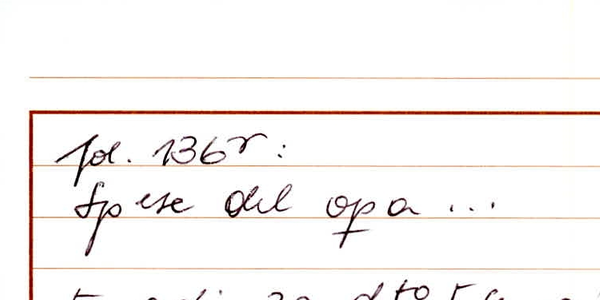 fol. 136r:
Spese del opa ...